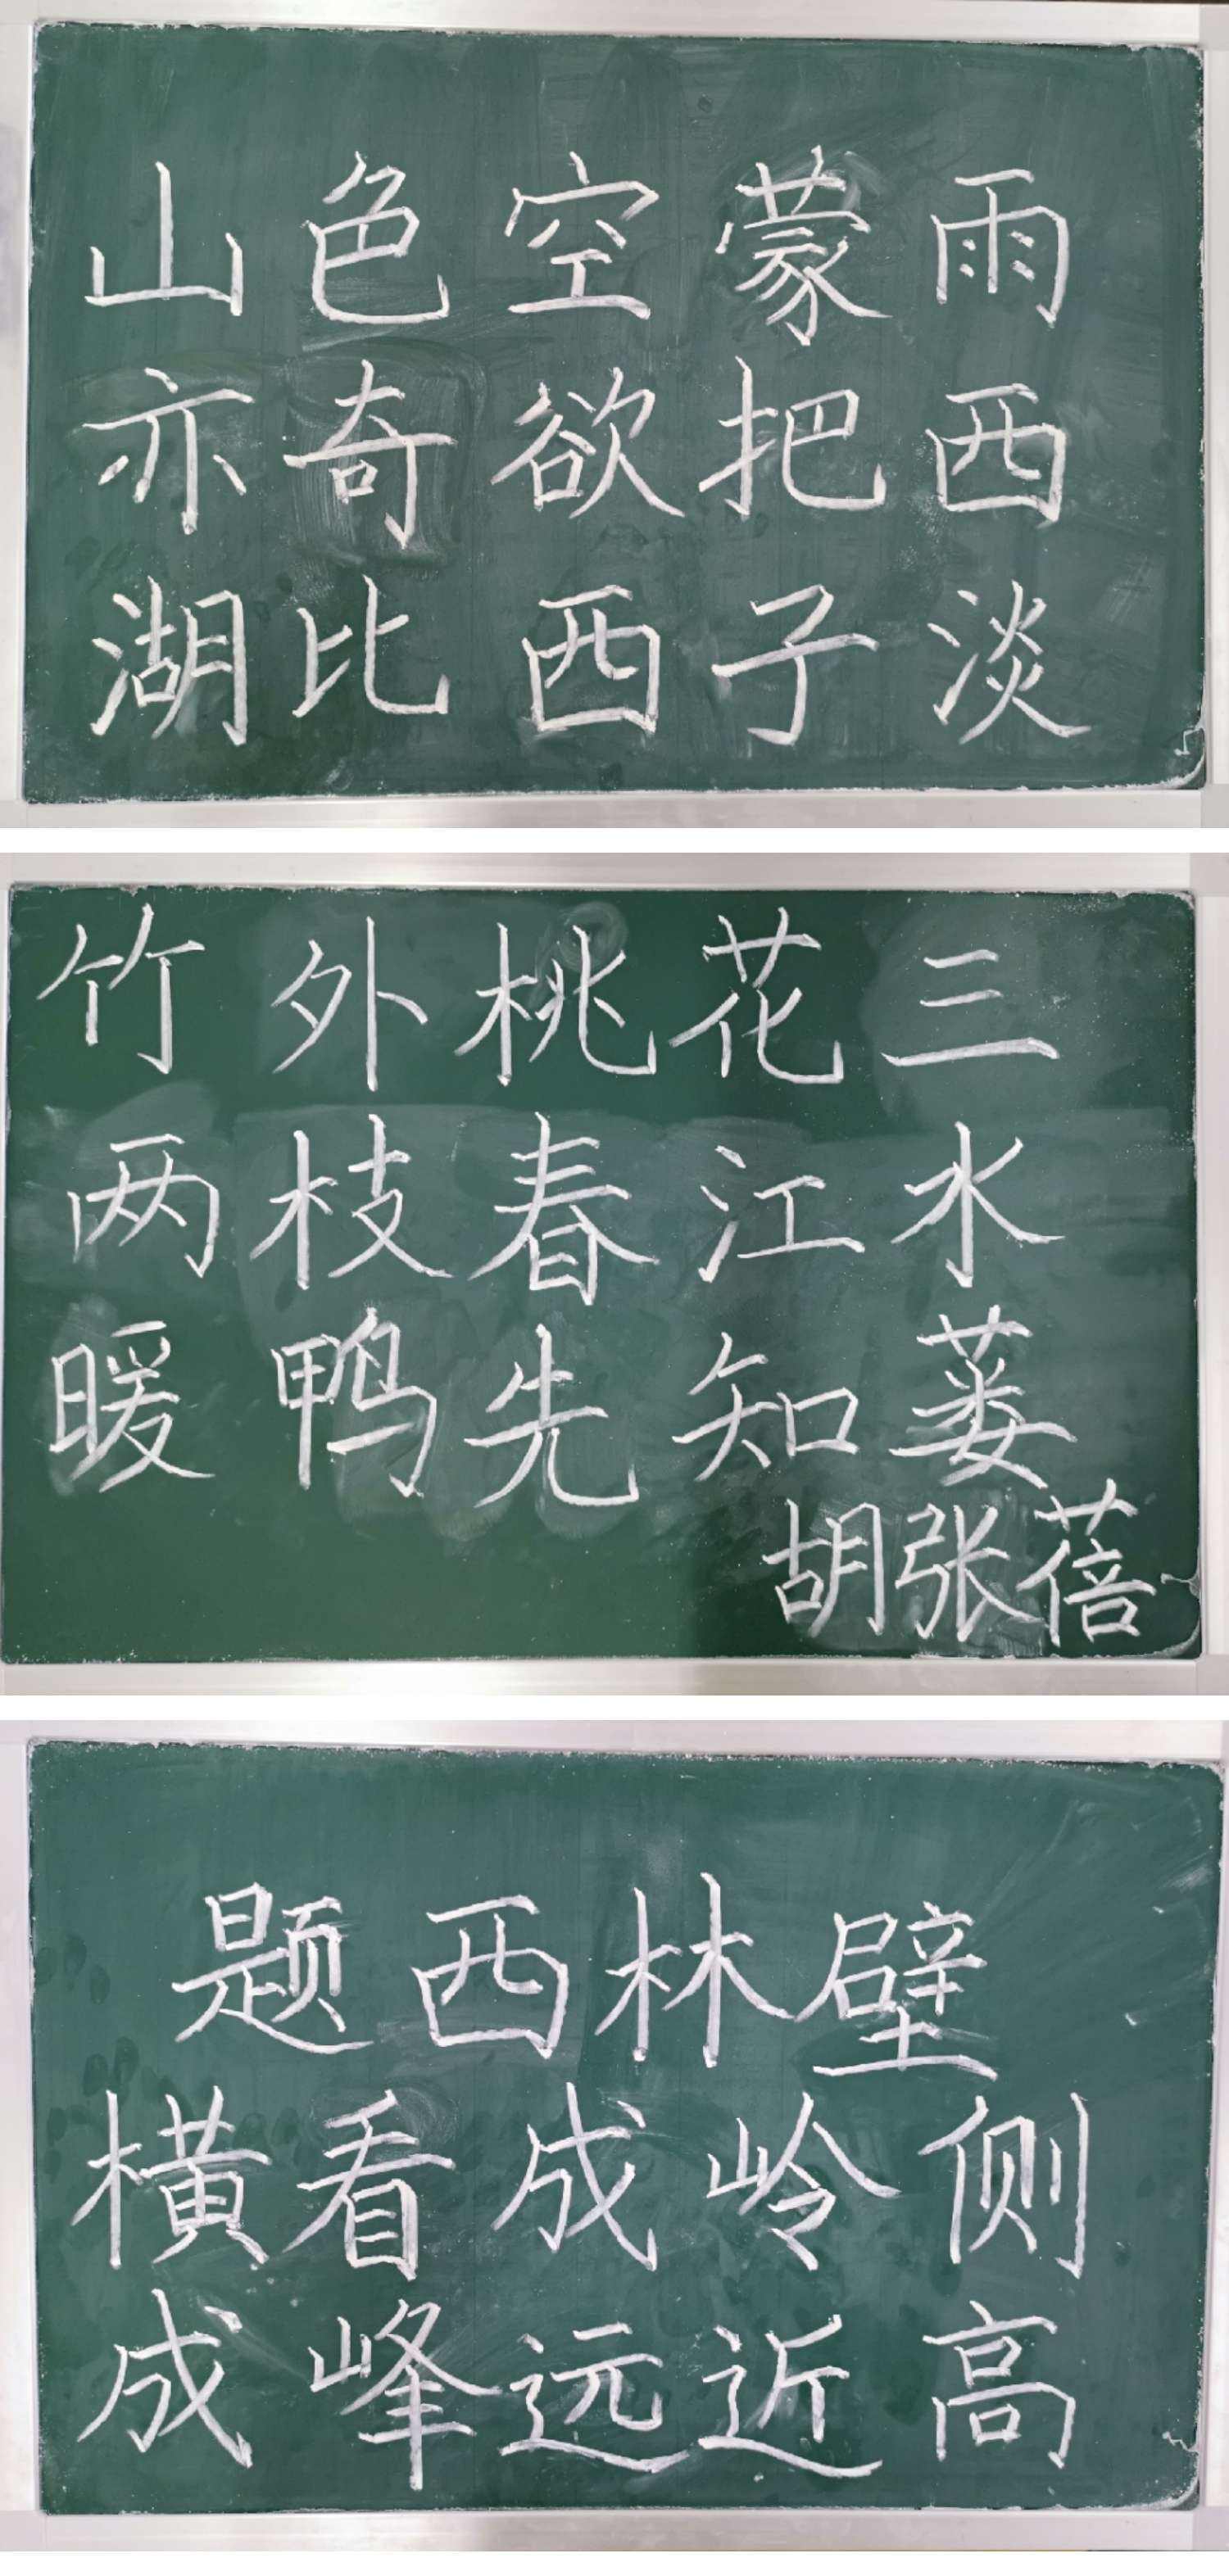 山色空蒙雨
亦奇欲把西
湖比西子淡
竹外桃花三
两枝春江水
暖鸭先知蒌
胡张蓓
题西林壁
横看成岭侧
成峰远近高